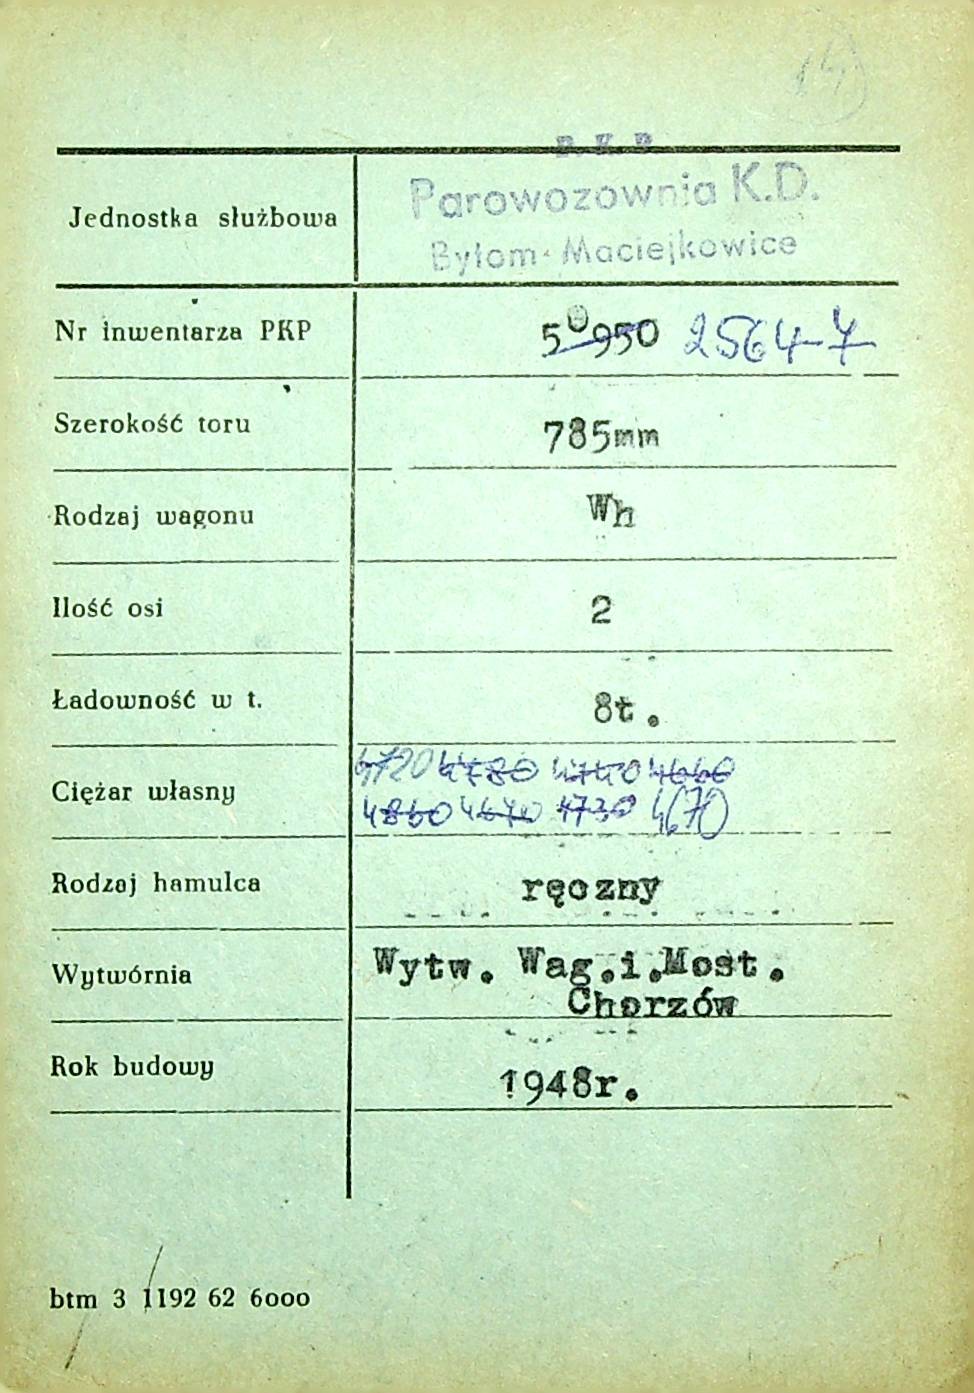 P.K.P
Jednostka służbowa Parowozownia K.D.
Bytom-Maciejkowice
Nr inwentarza PKP 50950 2564-7
Szerokość toru 785mm
Rodzaj wagonu Wh
Ilość osi 2
Ładowność w t. 8t.
Ciężar własny 4720 4780 4740 4660
4860 4640 4730 4670
Rodzaj hamulca ręczny
Wytwórnia Wytw. Wag.i.Most.
Chorzów
Rok budowy 1948r.
btm 3 1192 62 6000